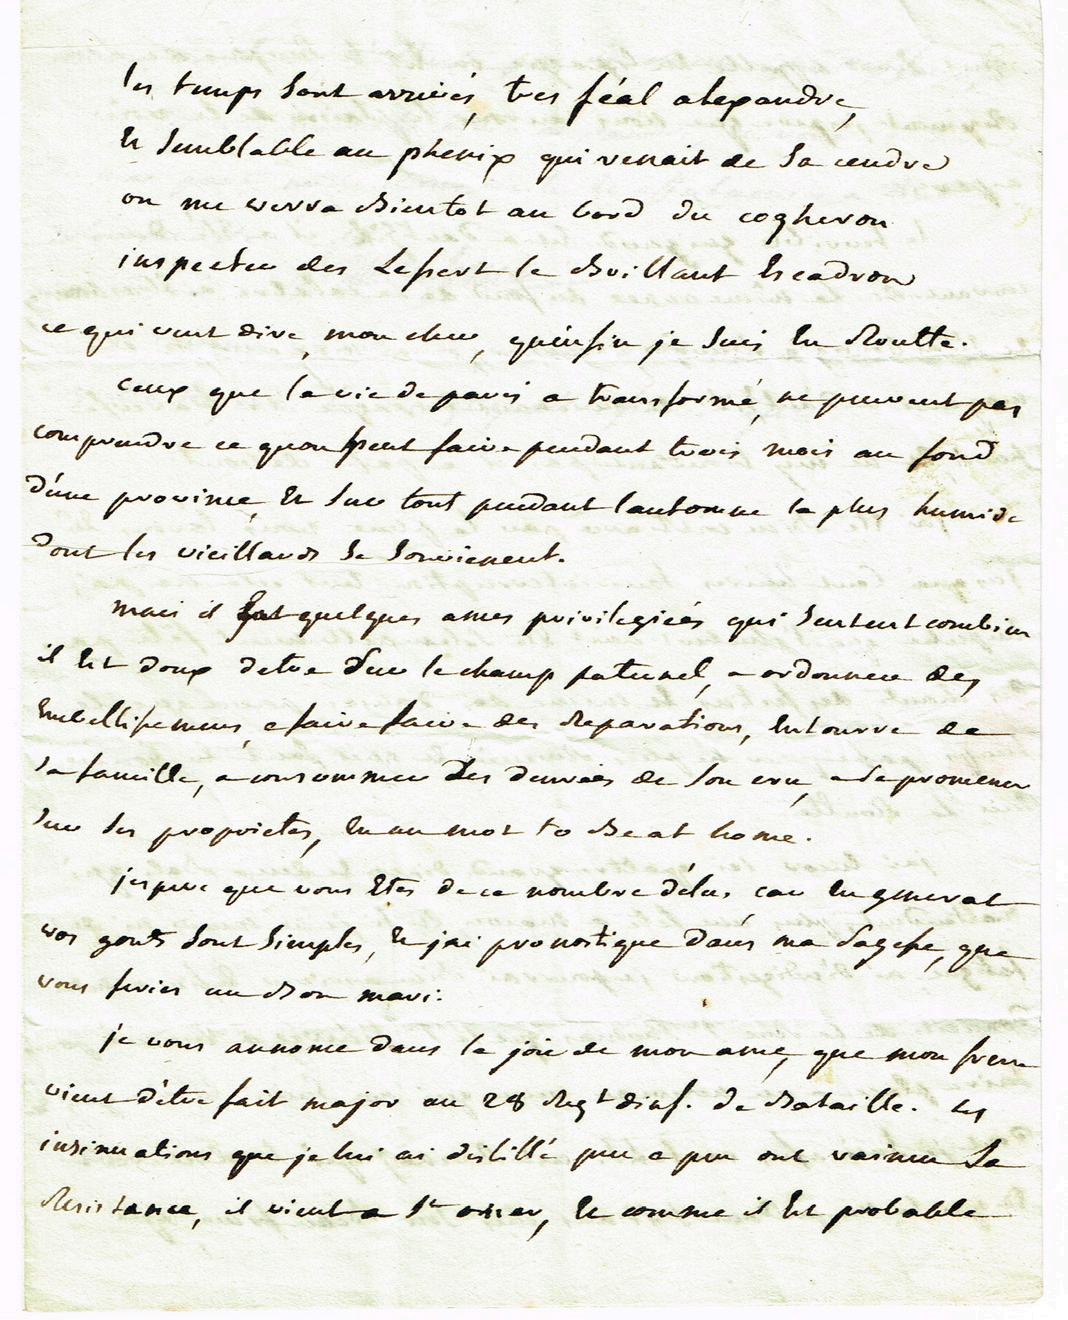 les temps sont arrivés, tres féal alexandre,
Et semblable au phenix qui renait de sa cendre
on me verra Bientot au bord du cogheron
inspecter des Lefort le Brillant Escadron
ce qui veut dire, mon cher, qu'enfin je suis En Routte.
ceux que la vie de paris a transformé, ne peuvent pas
comprendre ce quon peut faire pendant trois mois au fond
d'une province, Et sur tout pendant l'automne la plus humide
dont les vieillards se souvienent.
mais il Est quelques ames privilegiées qui sentent combien
il Est doux detre sur le champ paternel, a ordonner des
Embellissemens, a faire faire des Reparations, Entourré de
sa famille, a consommer des denrées de son cru, a se promener
sur ses proprietés, En un mot to Be at home.
j'espere que vous Etes de ce nombre d'élus, car En general
vos gouts sont simples, Et j'ai pronostiqué dans ma sagesse, que
vous feriés un Bon mari.
je vous annonce dans la joie de mon ame, que mon frere
vient d'être fait major au 28 Regt d'inf. de Bataille. Les
insinuations que je lui ai distillé peu a peu ont vaincu sa
Resistance, il vient a St omer, Et comme il Est probable